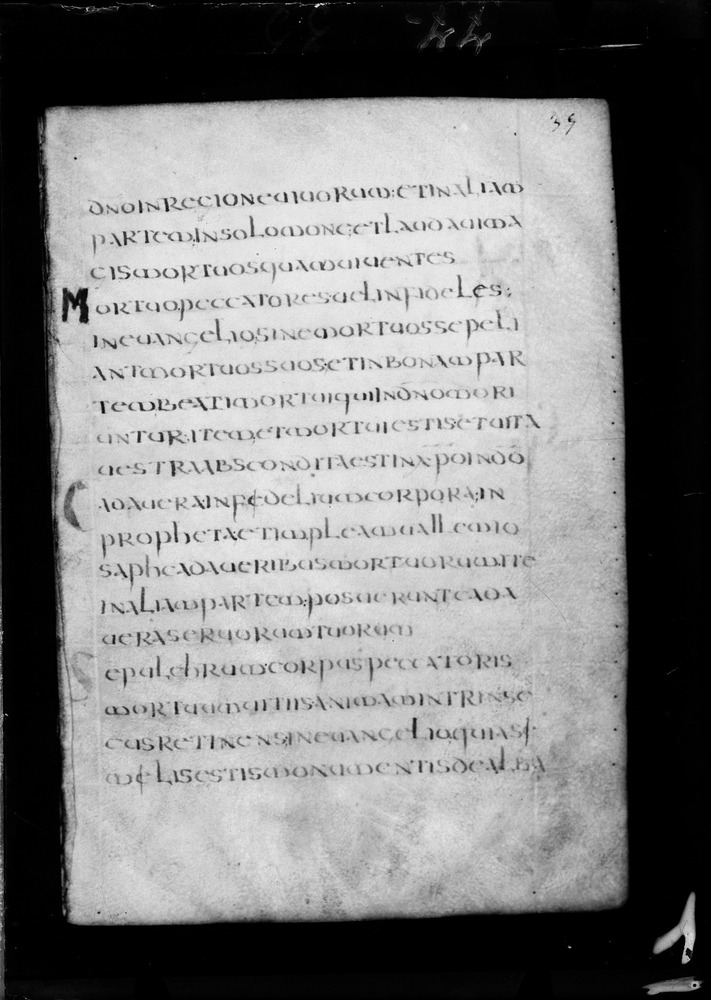 39
dno in regione uiuorum: et in aliam
partem in solomon et laudaui ma
gis mortuos quam uiuentes
Mortuo peccatores uel infideles:
in euangelio sine mortuos sepeli
ant mortuos suos et in bonam par
tem beati mortui qui in dno mori
untur: item et mortui estis et uita
uestra abscondita est in xpo in do
Cadauera infedelium corpora; in
propheta et impleam uallem io
saph cadaueribus mortuorum ite
in aliam partem: posuerunt cada
uera seruorum tuorum
Sepulchrum corpus peccatoris
mortuum uitiis animam intrinse
cus retinens; in euangelio quia si
melis estis monumentis dealba